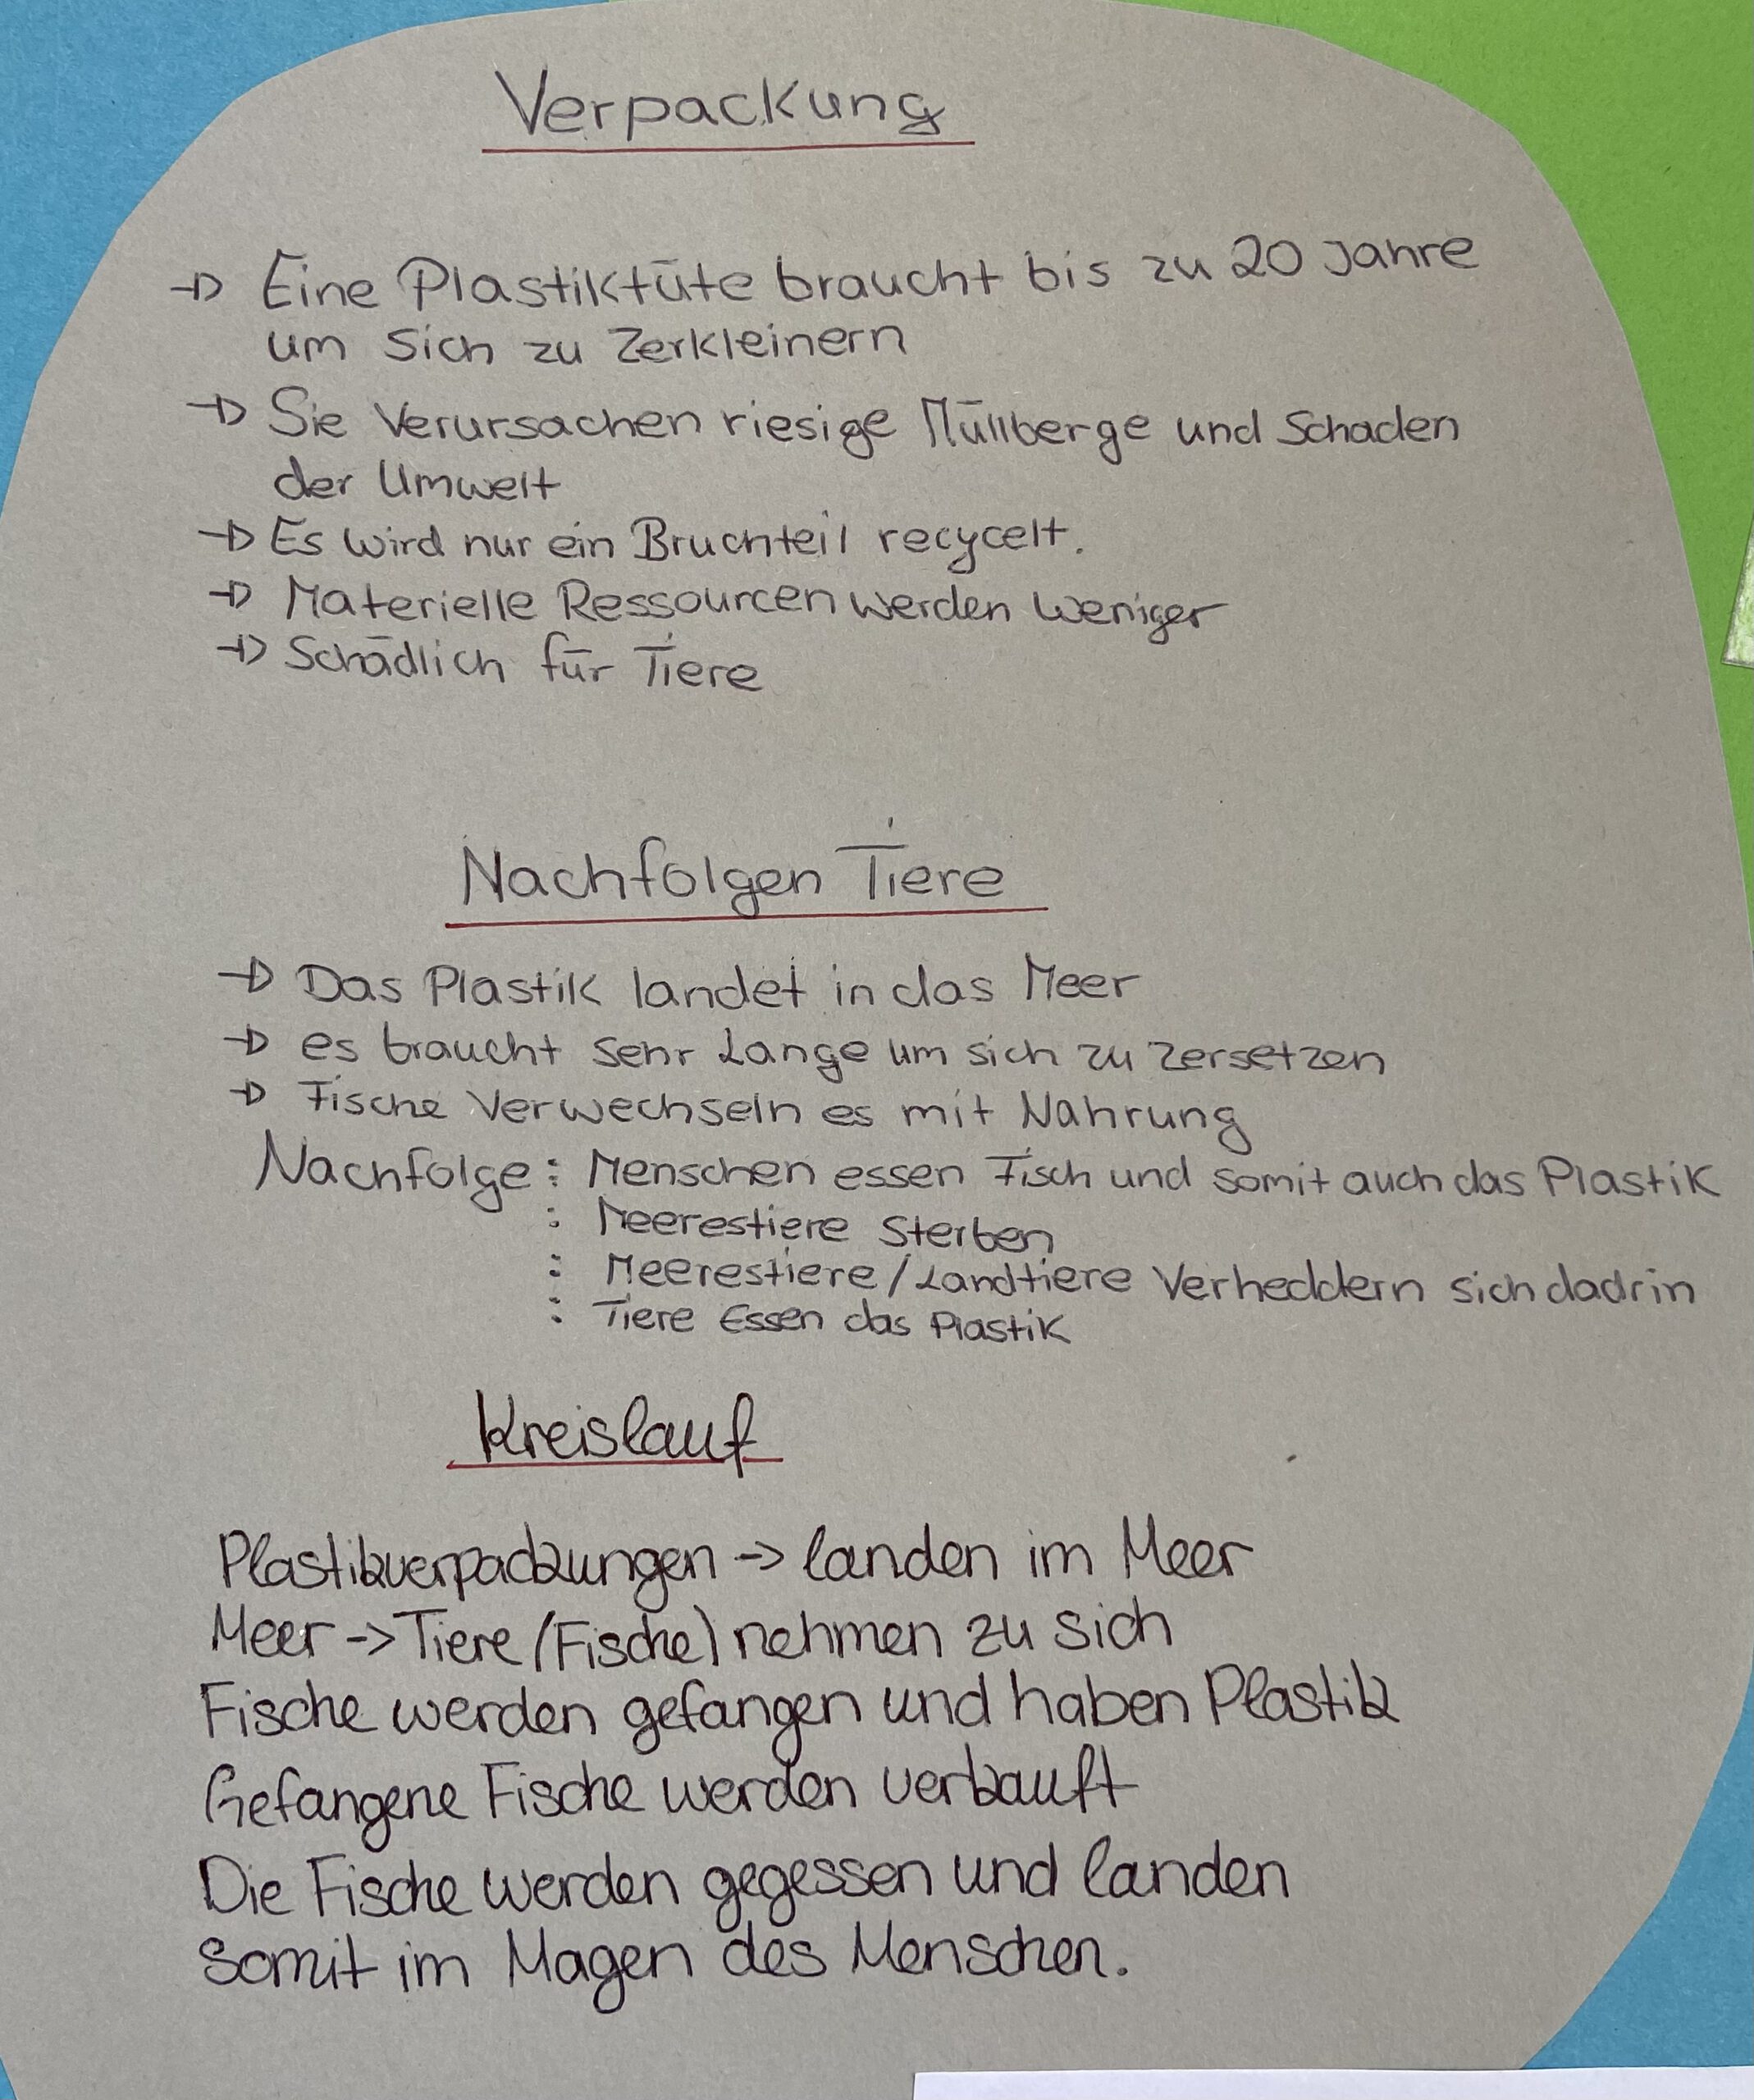 Verpackung
→ Eine Plastiktüte braucht bis zu 20 Jahre
um sich zu Zerkleinern
→ Sie Verursachen riesige Müllberge und Schaden
der Umwelt
→ Es wird nur ein Bruchteil recycelt.
→ Materielle Ressourcen werden weniger
→ Schädlich für Tiere
Nachfolgen Tiere
→ Das Plastik landet in das Meer
→ es braucht sehr Lange um sich zu zersetzen
→ Fische Verwechseln es mit Nahrung
Nachfolge : Menschen essen Fisch und somit auch das Plastik
: Meerestiere Sterben
: Meerestiere/Landtiere Verheddern sich dadrin
: Tiere Essen das Plastik
Kreislauf
Plastikverpackungen -> landen im Meer
Meer -> Tiere (Fische) nehmen zu sich
Fische werden gefangen und haben Plastik
Gefangene Fische werden verkauft
Die Fische werden gegessen und landen
somit im Magen des Menschen.